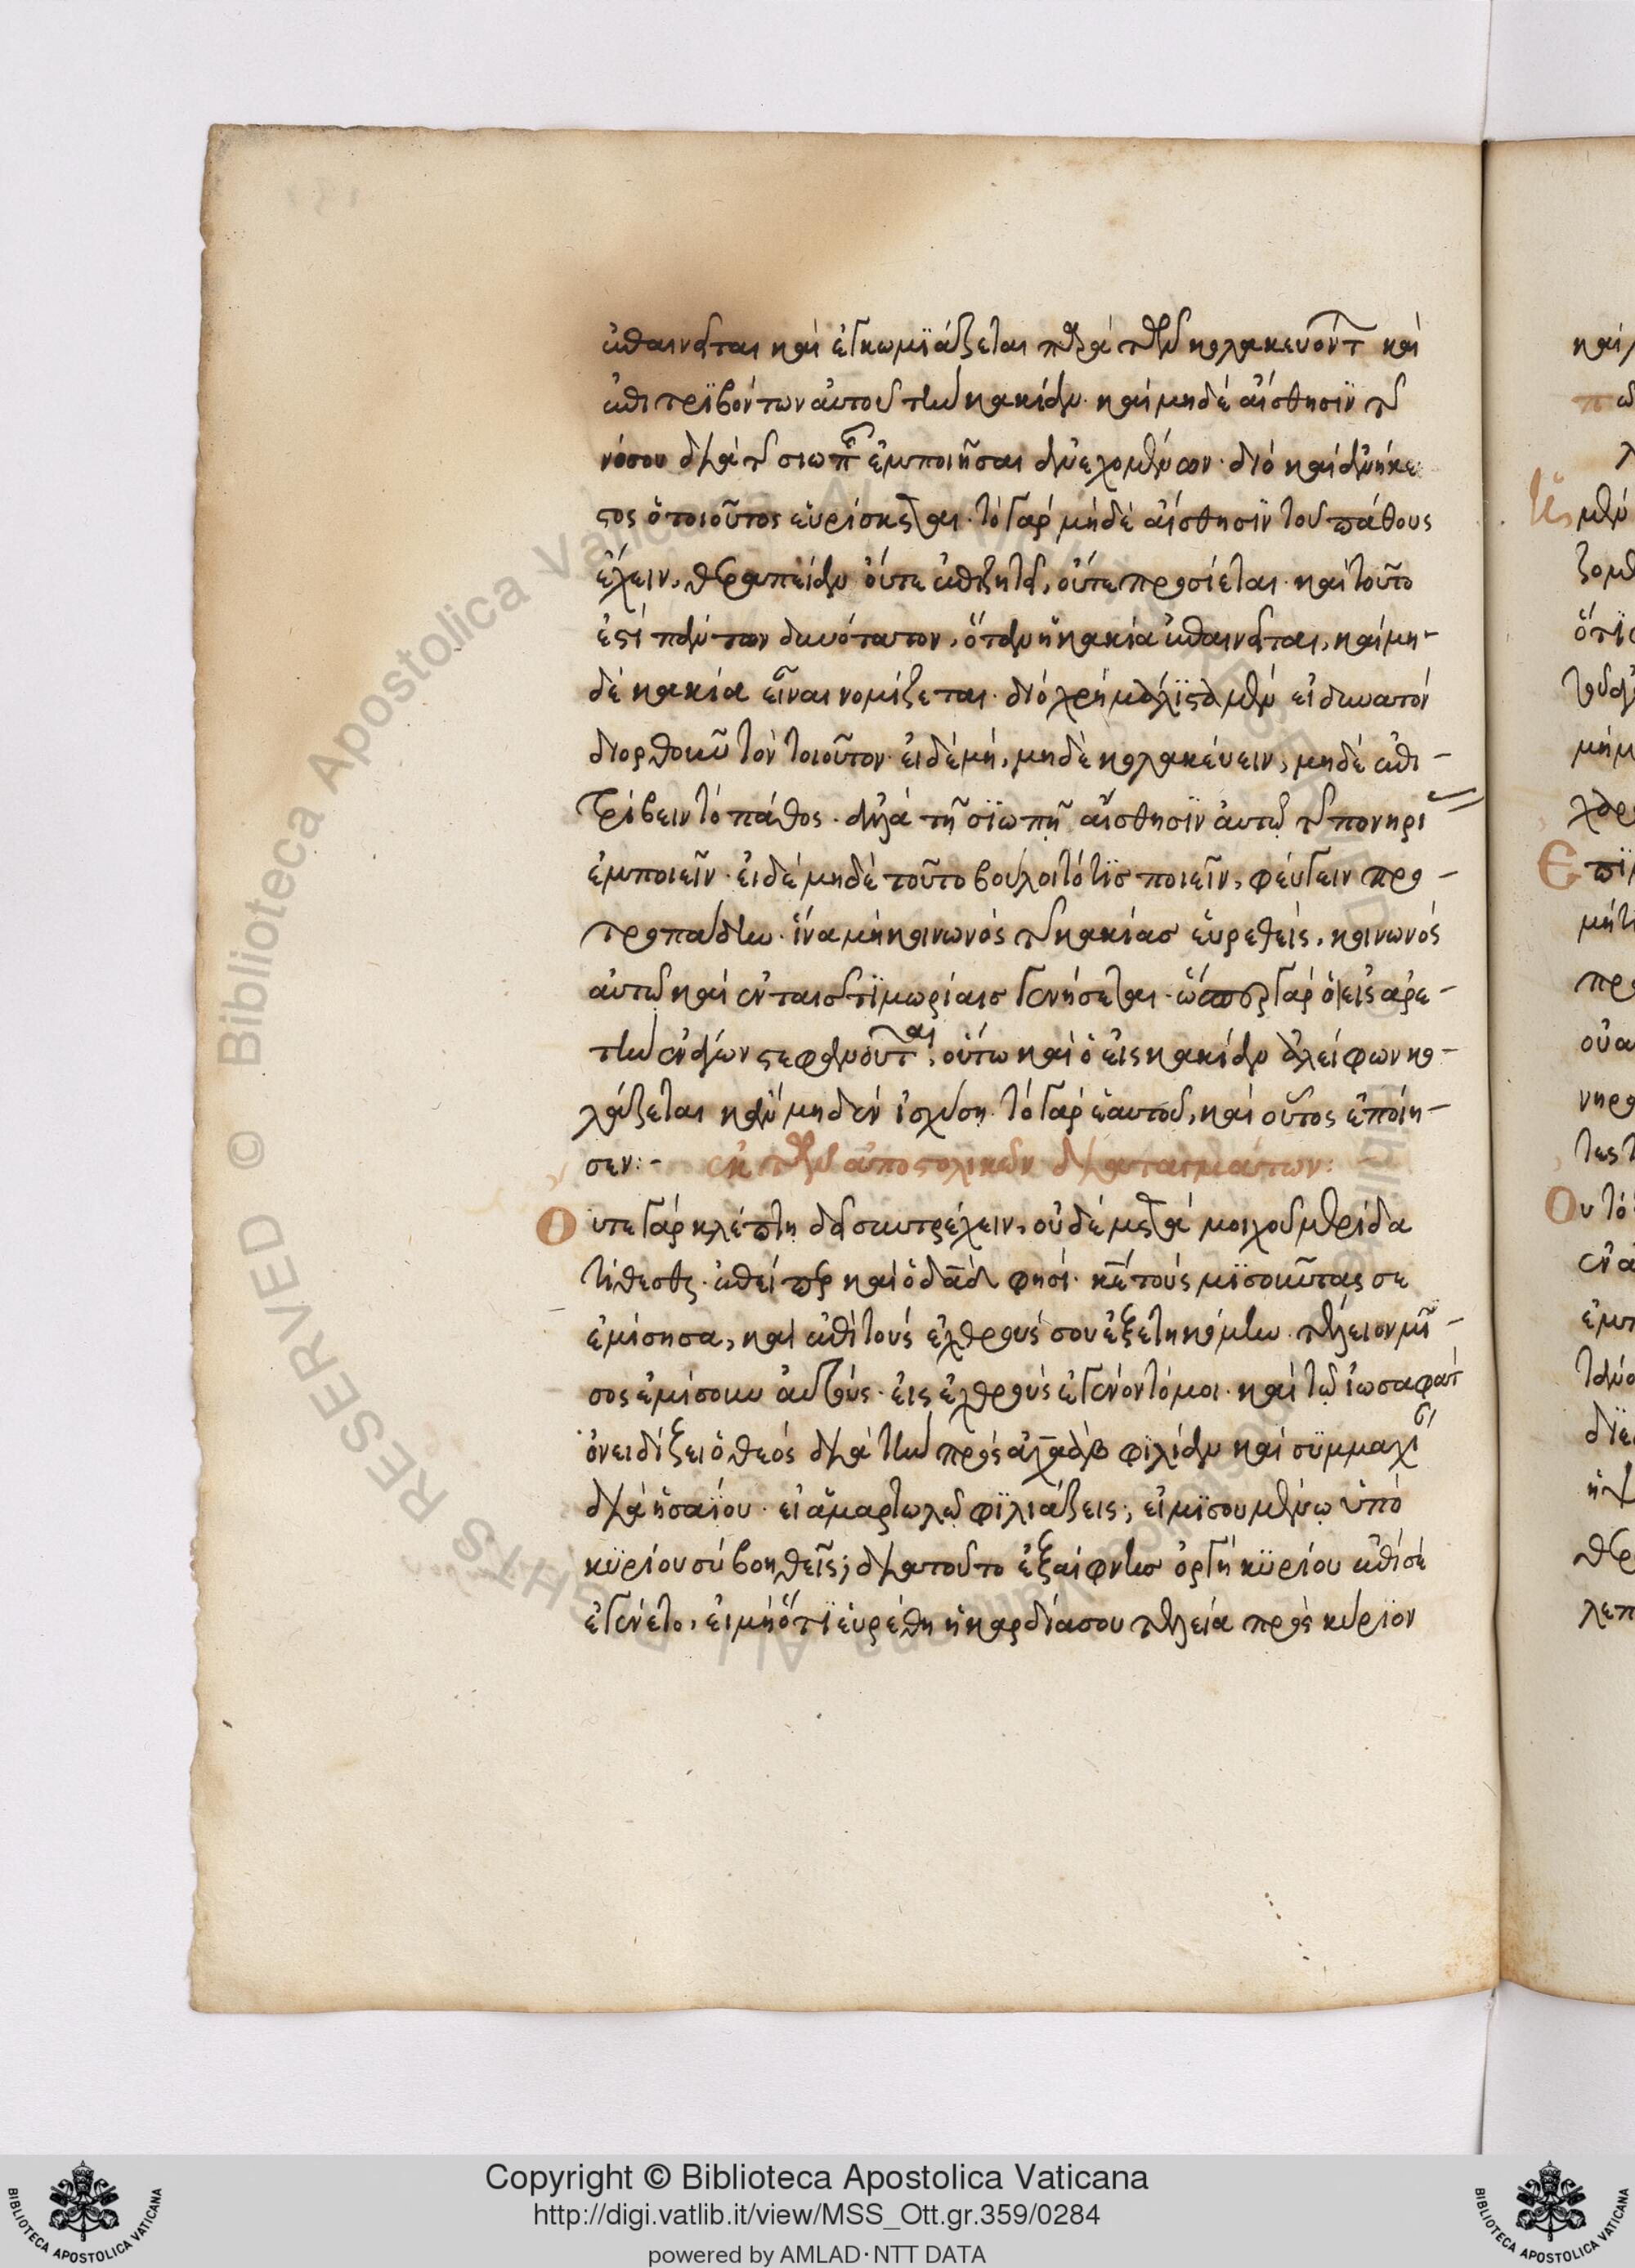 ἐπαινεῖται καὶ ἐγκωμϊάζεται παρὰ τῶν κολακευόντ καὶ
ἐπιτρϊβόντων αὐτοῦ τὴν κακίαν· καὶ μηδὲ αἴσθησϊν τῆς
νόσου διὰ τῆς σιωπῆς ἐμποιῆσαι ἀνεχομένων· διὸ καὶ ἀνήκε
στος ὁ τοιοῦτος εὑρίσκεται· τὸ γὰρ μηδὲ αἴσθησϊν τοῦ πάθους
ἔχειν, θεραπείαν οὔτε ἐπιζητεῖ, οὔτε προσίεται· καὶ τοῦτο
ἐστὶ πάντων δεινότατον, ὅταν ἡ κακία ἐπαινεῖται, καὶ μη-
δὲ κακία εἶναι νομίζεται· διὸ χρὴ μάλϊστα μὲν εἰ δυνατὸν
διορθοῦν τὸν τοιοῦτον· εἰ δὲ μὴ, μηδὲ κολακεύειν, μηδὲ ἐπι-
τρίβειν τὸ πάθος· ἀλλὰ τῇ σϊωπῇ αἴσθησϊν αὐτῷ τῆς πονηρί
ἐμποιεῖν· εἰ δὲ μηδὲ τοῦτο βούλοιτό τϊς ποιεῖν, φεύγειν προ-
τροπάδην· ἵνα μὴ κοινωνὸς τῆς κακίας εὑρεθεὶς, κοινωνὸς
αὐτῷ καὶ ἐν ταῖς τϊμωρίαις γενήσεται· ὥσπερ γὰρ ὁ εἰς ἀρε-
τὴν ἐνάγων στεφανοῦται, οὕτω καὶ ὁ εἰς κακίαν ἀλείφων κο-
λάζεται κἂν μηδὲν ἰσχύσῃ· τὸ γὰρ ἑαυτοῦ, καὶ οὗτος ἐποίη-
σεν:- ἐκ τῶν ἀποστολικῶν διαταγμάτων:
Οὔτε γὰρ κλέπτῃ δεῖ συντρέχειν, οὐδὲ μετὰ μοιχοῦ μερίδα
τίθεσθαι· ἐπείπερ καὶ ὁ δᾱδ φησί· κε τοὺς μϊσοῦντας σε
ἐμίσησα, καὶ ἐπὶ τοὺς ἐχθρούς σου ἐξετηκόμην· τέλειον μῖ-
σος ἐμίσουν αὐτούς· εἰς ἐχθροὺς ἐγένοντό μοι· καὶ τῷ ἰωσαφὰτ
ὀνειδίζει ὁ θεὸς διὰ τὴν πρὸς ἀχαὰβ φϊλίαν καὶ σϋμμαχί
διὰ ἡσαΐου· εἰ ἁμαρτωλῷ φϊλιάζεις; εἰ μϊσουμένῳ ὑπὸ
κϋρίου σὺ βοηθεῖς; διὰ τοῦτο ἐξαίφνης ὀργὴ κϋρίου ἐπὶ σὲ
ἐγένετο, εἰ μὴ ὅτϊ εὑρέθη ἡ καρδία σου τελεία πρὸς κύρϊον
Copyright © Biblioteca Apostolica Vaticana
http://digi.vatlib.it/view/MSS_Ott.gr.359/0284
powered by AMLAD·NTT DATA